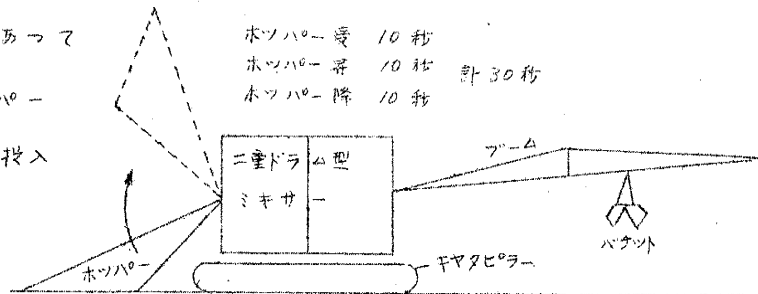 あつて
パー
投入
ホツパー受 10秒
ホツパー昇 10秒
ホツパー降 10秒
計30秒
二重ドラム型
ミキサー
ブーム
バケット
ホツパー
キヤタピラー